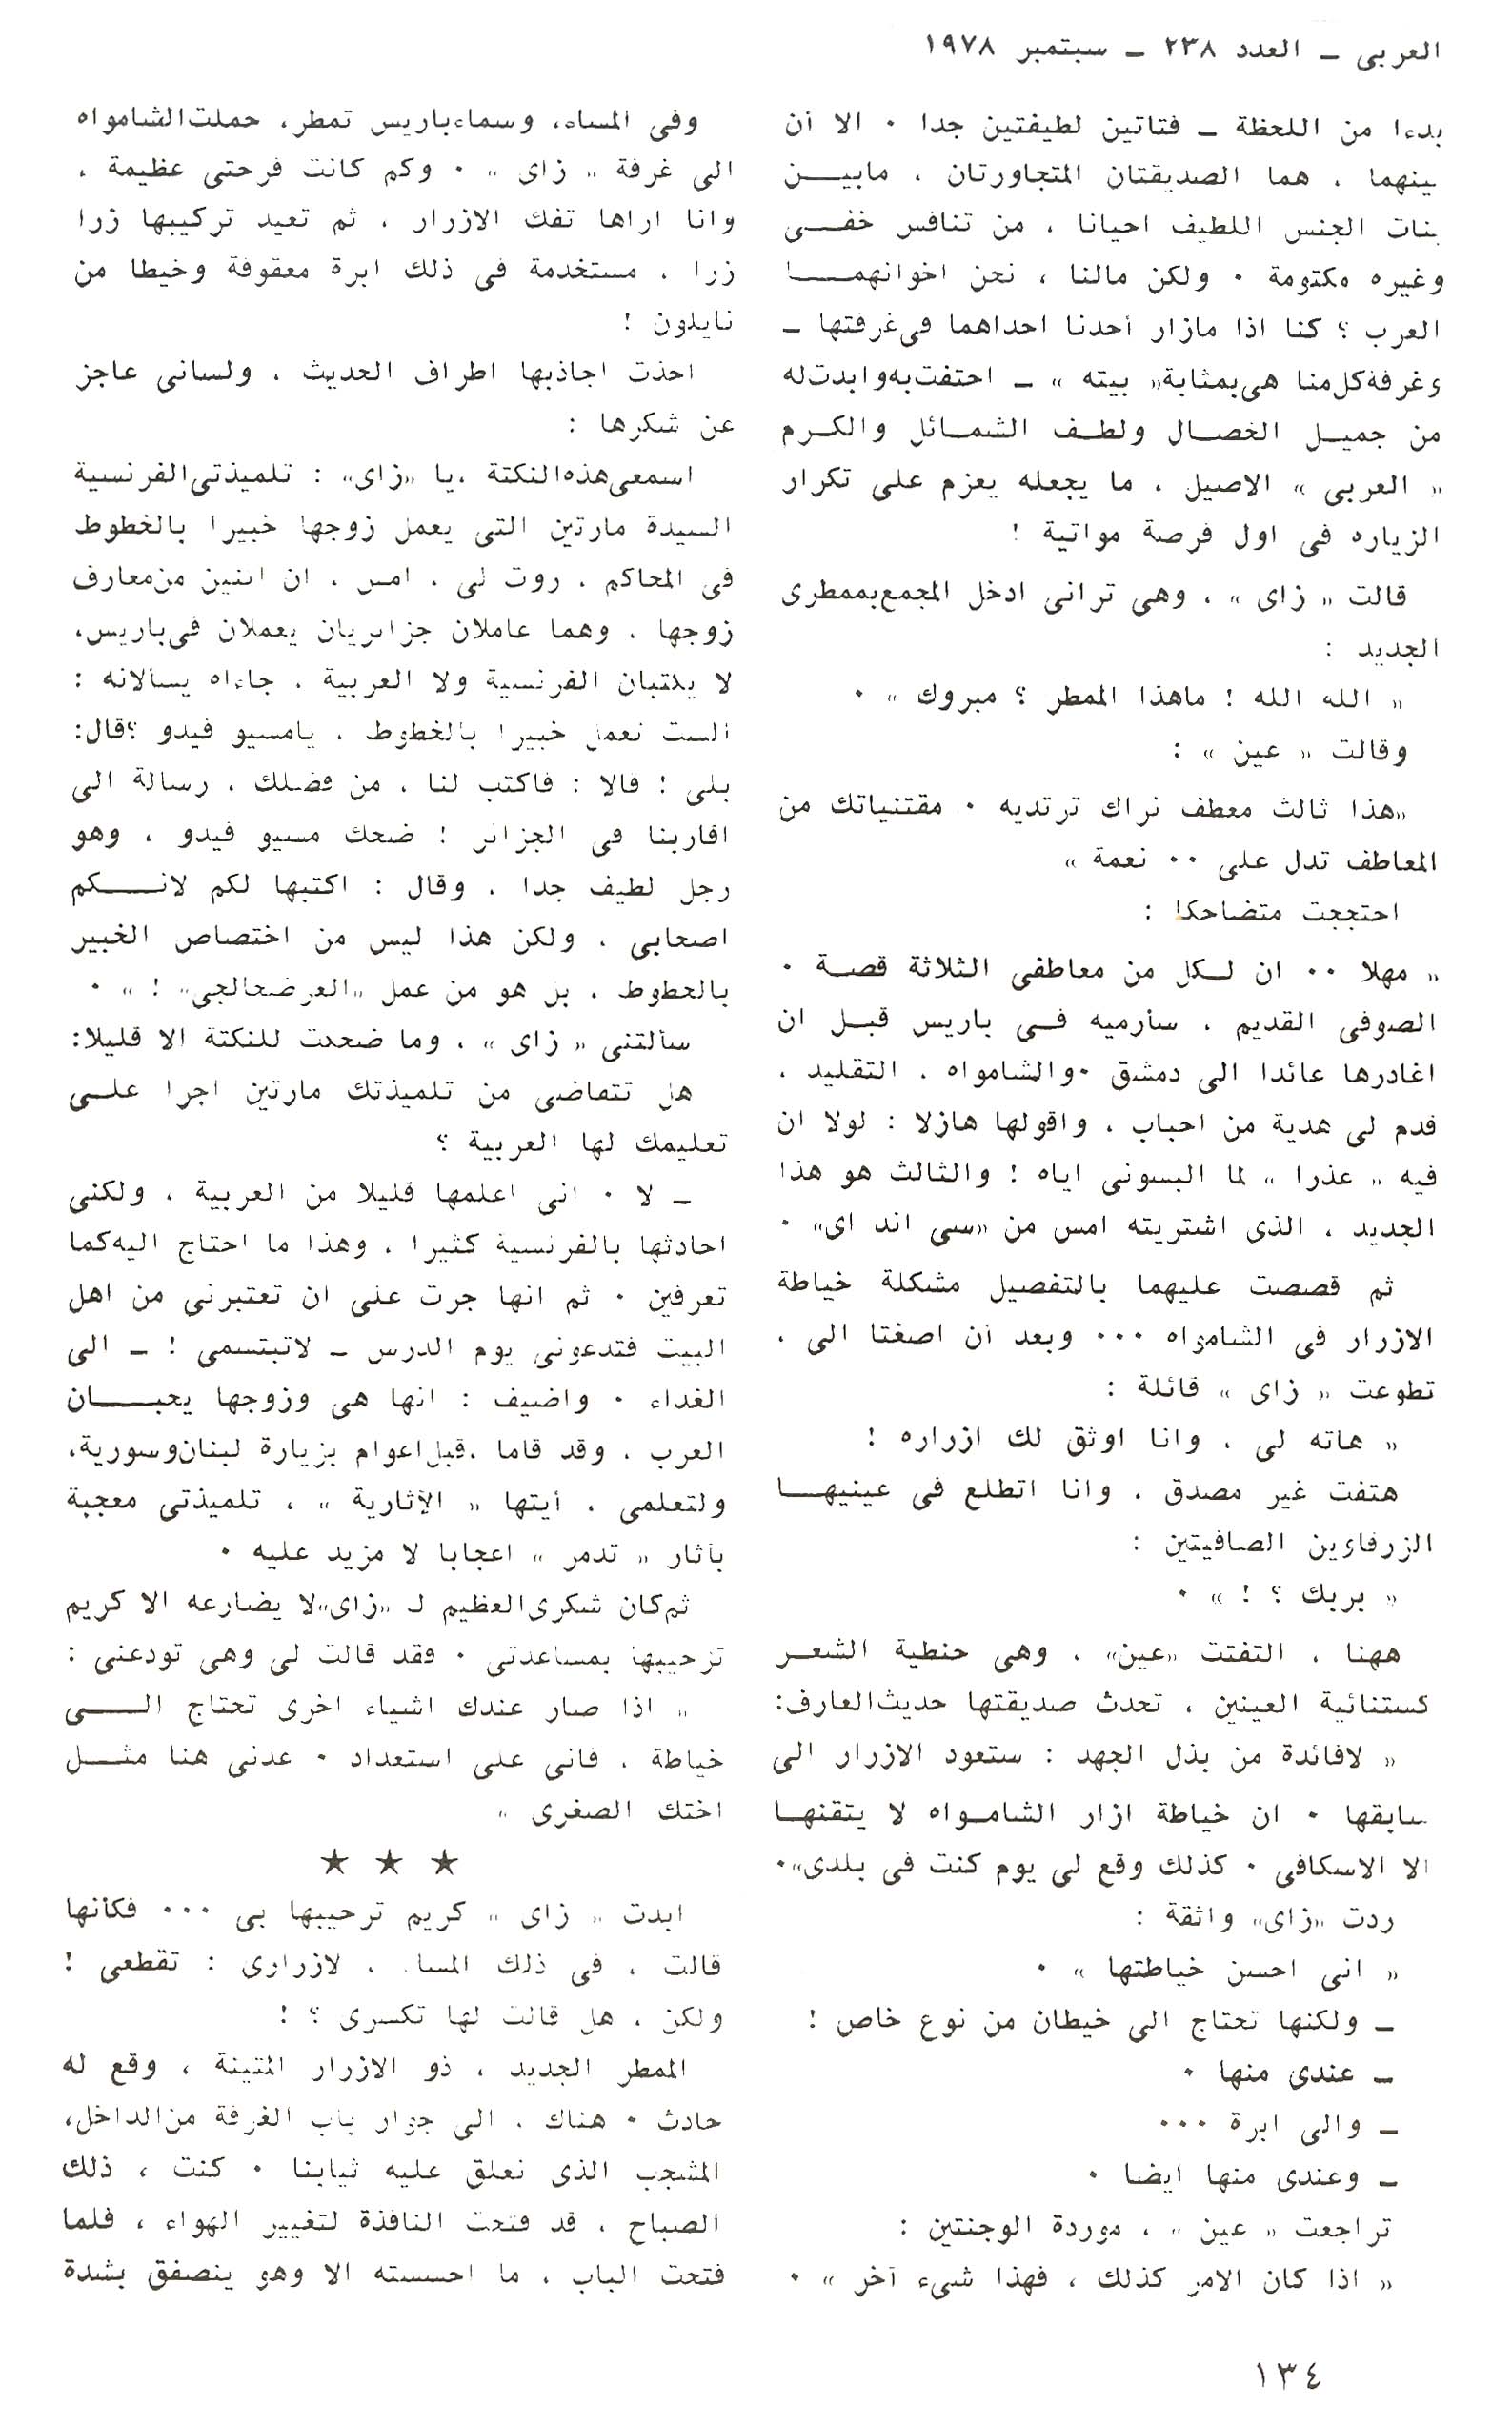 العربى ـ العدد ٢٣٨ ـ سبتمبر ١٩٧٨
بدءا من اللحظة ـ فتاتين لطيفتين جدا . الا أن
بينهما ، هما الصديقتان المتجاورتان ، مابيــن
بنات الجنس اللطيف احيانا ، من تنافس خفــى
وغيره مكتومة . ولكن مالنا ، نحن اخوانهمــا
العرب ؟ كنا اذا مازار أحدنا احداهما فى غرفتها ـ
وغرفة كل منا هى بمثابة « بيته » ـ احتفت به وابدت له
من جميــل الخصــال ولطــف الشمــائل والكــرم
« العربى » الاصيل ، ما يجعله يعزم على تكرار
الزياره فى اول فرصة مواتية !
قالت « زاى » ، وهى ترانى ادخل المجمع بممطرى
الجديد :
« الله الله ! ماهذا الممطر ؟ مبروك » .
وقالت « عين » :
«هذا ثالث معطف نراك ترتديه . مقتنياتك من
المعاطف تدل على .. نعمة »
احتججت متضاحكا :
« مهلا .. ان لــكل من معاطفى الثلاثة قصــة .
الصوفى القديم ، سأرميه فــى باريس قبــل ان
اغادرها عائدا الى دمشق . والشامواه ، التقليد ،
قدم لى هدية من احباب ، واقولها هازلا : لولا ان
فيه « عذرا » لما البسونى اياه ! والثالث هو هذا
الجديد ، الذى اشتريته امس من «سى اند اى» .
ثم قصصت عليهما بالتفصيل مشكلة خياطة
الازرار فى الشامواه ... وبعد أن اصغتا الى ،
تطوعت « زاى » قائلة :
« هاته لى ، وانا اوثق لك ازراره !
هتفت غير مصدق ، وانا اتطلع فى عينيهــا
الزرقاوين الصافيتين :
« بربك ؟ ! » .
ههنا ، التفتت «عين» ، وهى حنطية الشعــر
كستنائية العينين ، تحدث صديقتها حديث العارف:
« لافائدة من بذل الجهد : ستعود الازرار الى
سابقها . ان خياطة ازار الشامــواه لا يتقنهــا
الا الاسكافى . كذلك وقع لى يوم كنت فى بلدى».
ردت «زاى» واثقة :
« انى احسن خياطتها » .
ـ ولكنها تحتاج الى خيطان من نوع خاص !
ـ عندى منها .
ـ والى ابرة ...
ـ وعندى منها ايضا .
تراجعت « عين » ، موردة الوجنتين :
« اذا كان الامر كذلك ، فهذا شىء آخر » .
وفى المساء، وسماء باريس تمطر، حملت الشامواه
الى غرفة « زاى » . وكم كانت فرحتى عظيمة ،
وانا اراها تفك الازرار ، ثم تعيد تركيبها زرا
زرا ، مستخدمة فى ذلك ابرة معقوفة وخيطا من
نايلون !
اخذت اجاذبها اطراف الحديث ، ولسانى عاجز
عن شكرها :
اسمعى هذه النكتة ،يا «زاى» : تلميذتى الفرنسية
السيدة مارتين التى يعمل زوجها خبيرا بالخطوط
فى المحاكم ، روت لى ، امس ، ان اثنين من معارف
زوجها ، وهما عاملان جزائريان يعملان فى باريس،
لا يكتبان الفرنسية ولا العربية ، جاءاه يسألانه :
الست تعمل خبيرا بالخطوط ، يامسيو فيدو ؟قال:
بلى ! قالا : فاكتب لنا ، من فضلك ، رسالة الى
اقاربنا فى الجزائر ! ضحك مسيو فيدو ، وهو
رجل لطيف جدا ، وقال : اكتبها لكم لانــكم
اصحابى ، ولكن هذا ليس من اختصاص الخبير
بالخطوط ، بل هو من عمل «العرضحالجى» ! » .
سألتنى « زاى » ، وما ضحكت للنكتة الا قليلا:
هل تتقاضى من تلميذتك مارتين اجرا علــى
تعليمك لها العربية ؟
ـ لا . انى اعلمها قليلا من العربية ، ولكنى
احادثها بالفرنسية كثيرا ، وهذا ما احتاج اليه كما
تعرفين . ثم انها جرت على ان تعتبرنى من اهل
البيت فتدعونى يوم الدرس ـ لاتبتسمى ! ـ الى
الغداء . واضيف : انها هى وزوجها يحبــان
العرب ، وقد قاما ،قبل اعوام بزيارة لبنان وسورية،
ولتعلمى ، أيتها « الآثارية » ، تلميذتى معجبة
بآثار « تدمر » اعجابا لا مزيد عليه .
ثم كان شكرى العظيم لـ «زاى» لا يضارعه الا كريم
ترحيبها بمساعدتى . فقد قالت لى وهى تودعنى :
« اذا صار عندك اشياء اخرى تحتاج الــى
خياطة ، فانى على استعداد . عدنى هنا مثــل
اختك الصغرى »
★ ★ ★
ابدت « زاى » كريم ترحيبها بى ... فكأنها
قالت ، فى ذلك المساء ، لازرارى : تقطعى !
ولكن ، هل قالت لها تكسرى ؟ !
الممطر الجديد ، ذو الازرار المتينة ، وقع له
حادث . هناك ، الى جوار باب الغرفة من الداخل،
المشجب الذى نعلق عليه ثيابنا . كنت ، ذلك
الصباح ، قد فتحت النافذة لتغيير الهواء ، فلما
فتحت الباب ، ما احسسته الا وهو ينصفق بشدة
١٣٤